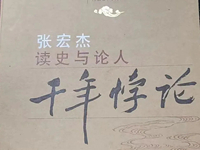 张宏杰
读史与论人
千年悖论